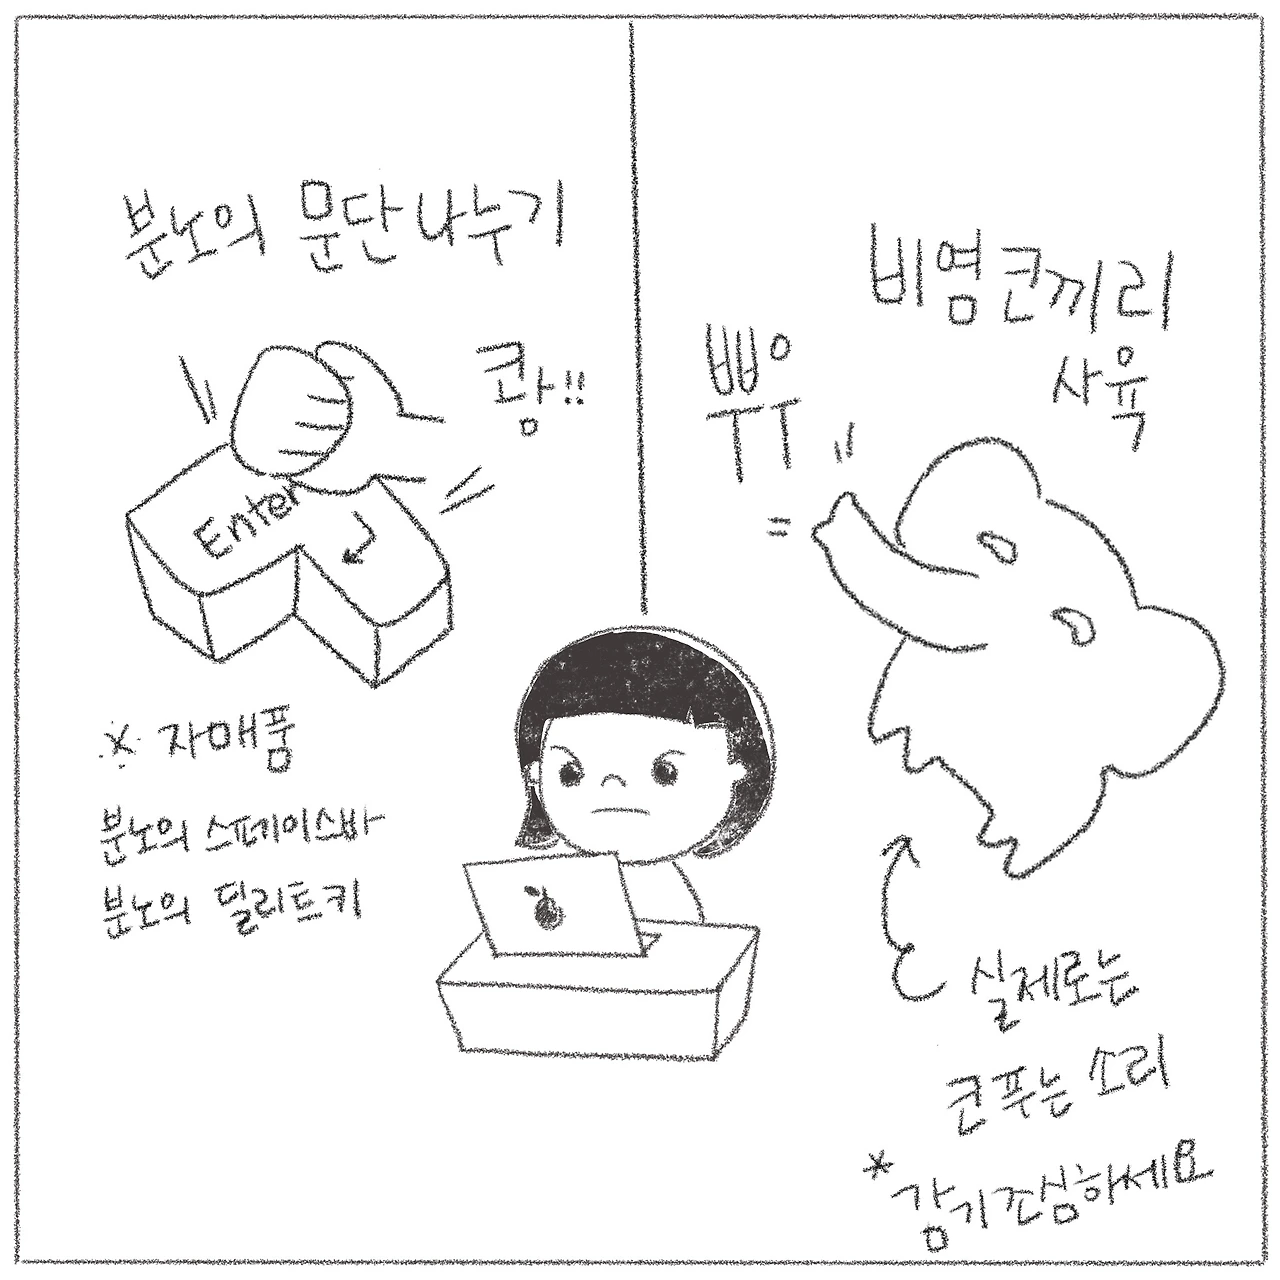 분노의 문단나누기
쾅!!
Enter
※ 자매품
분노의 스페이스바
분노의 딜리트키
비염코끼리
사육
뿌우
실제로는
코푸는 소리
*감기조심하세요